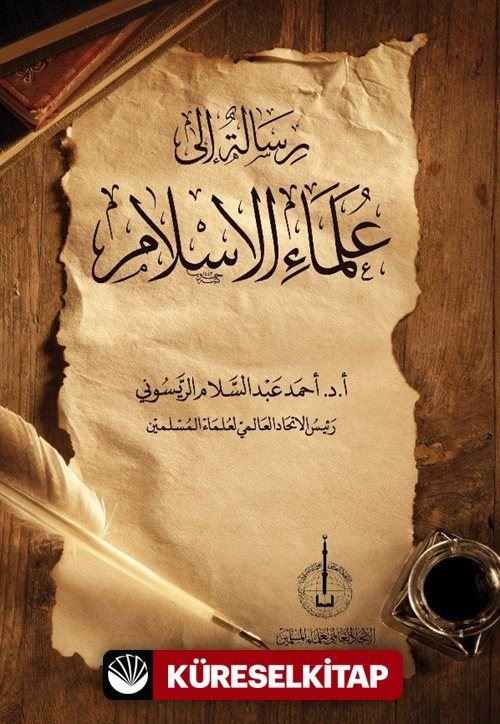 رِسَالةٌ إلى
عُلمَاءِ الإسْلام
أ.د. أحمد عَبْد السَّلام الريّسُوني
رَئيسُ الاتحاد العَالميّ لعُلمَاء المُسْلمين
الاتحاد العالمي لعلماء المسلمين
KÜRESELKİTAP